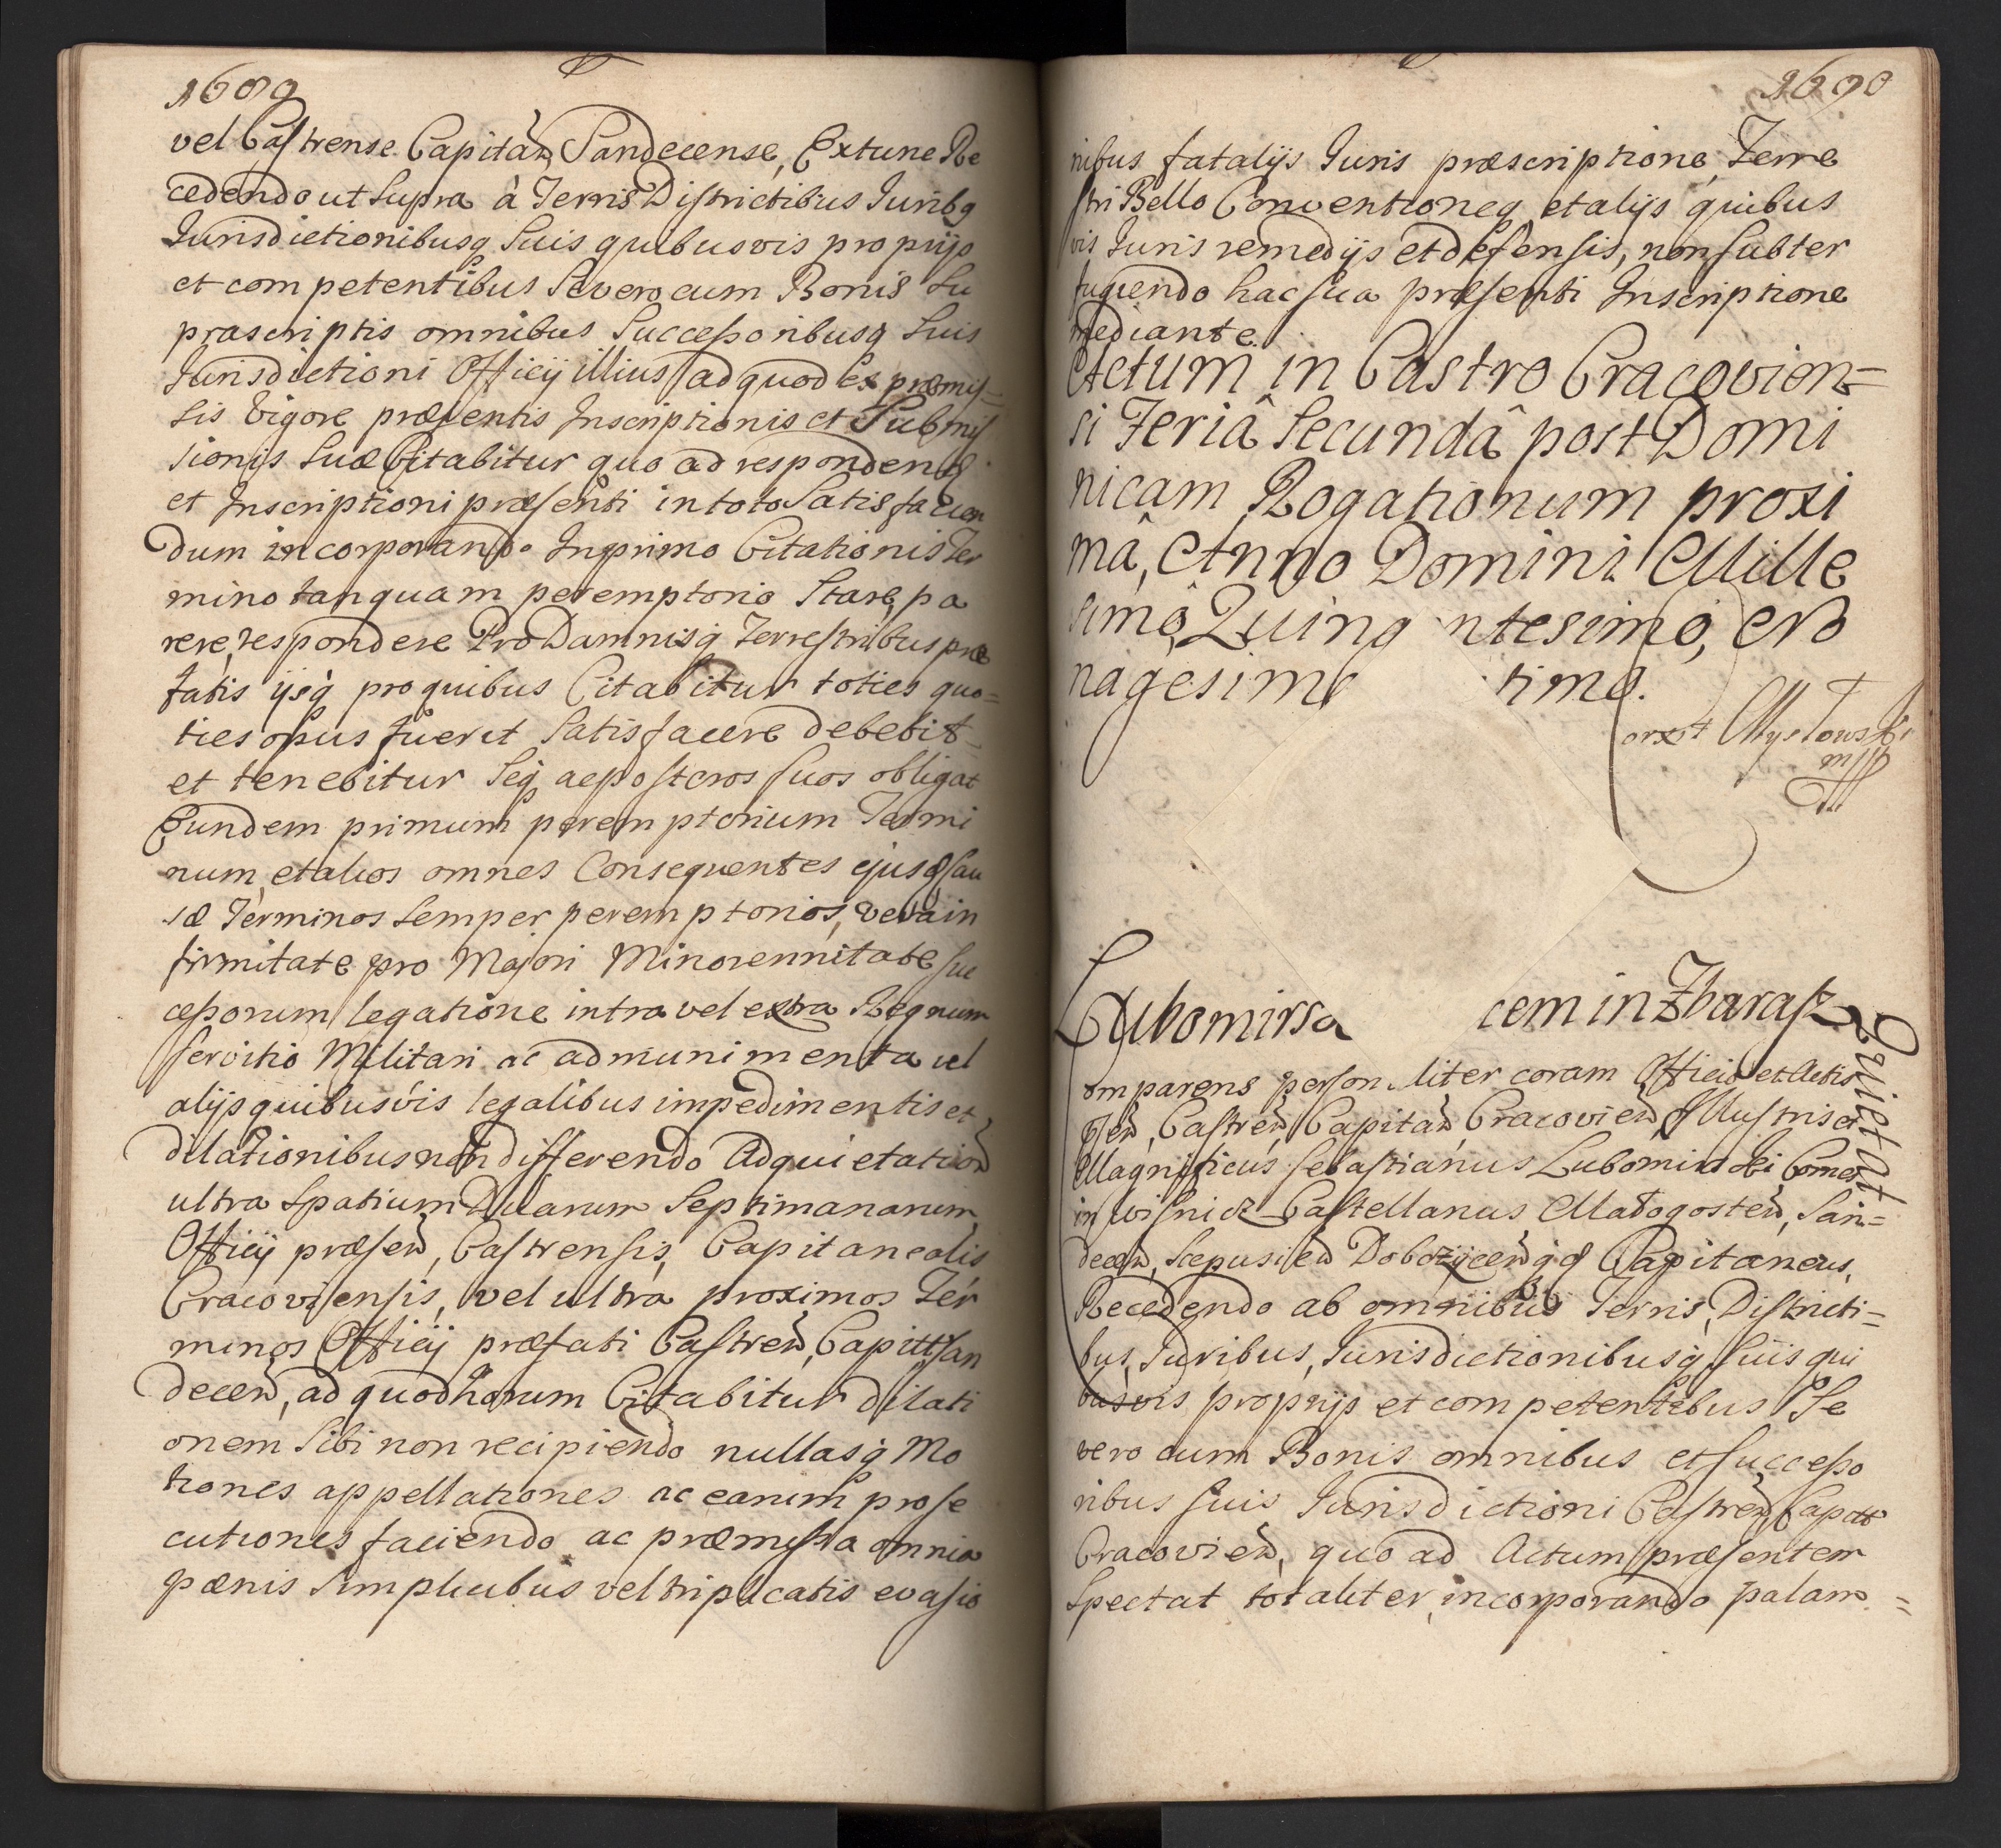 1689
vel Castrense Capitan Sandecense, Extunc Re
cedendo ut Supra à Terris Districtibus Juribq
Jurisdictionibusq Suis quibusvis proprijs
et competentibus Se vero cum Bonis Su
prascriptis omnibus Successoribusq Suis
Jurisdictioni Officij illius ad quod ex præmis=
sis Vigore præsentis Inscriptionis et Submis
sionis Suæ Citabitur quo ad respondend
et Inscriptioni præsenti in toto Satisfacien
dum incorporando Inqprimo Citationis Ter
mino tanquam peremptorio Stare, pa
rere, respondere Pro Damnisq Terrestribus præ
fatis ijsq pro quibus Citabitur toties quo=
ties opus fuerit Satisfacere debebit
et tenebitur Seq ac posteros suos obligat
Eundem primum peremptorium Termi
num, et alios omnes Consequentes ejusd Cau
sæ Terminos Semper peremptorios, vera in
firmitate pro Majori Minorennitate suc
cessorum legatione intra vel extra Regnum
servitio Militari ac ad munimenta vel
alijs quibusvis legalibus impedimentis et
dilationibus non differendo Ad quietation
ultra Spatium Duarum Septimanarum
Officij præsen, Castrensis, Capitanealis
Cracoviensis, vel ultra proximos Ter
minos Officij præfati Castren, Capitt San
decen, ad quod horum Citabitur dilati
onem Sibi non recipiendo nullasq Mo
tiones appellationes ac earum prose
cutiones faciendo ac præmissa omnia
pænis Simplicibus vel triplicatis evasio
1690
nibus fatalijs Juris præscriptione, Terre
stri Bello Conventioneq et alijs quibus
vis Juris remedijs et defensis, non subter
fugiendo hac sua præsenti Inscriptione
mediante.
Actum in Castro Cracovien=
si Feriâ Secundâ post Domi
nicam Rogationum proxi
mâ, Anno Domini Mille
simô, Quing ntesimô, No
nagesim timô.
Lubomirsa cem in Zbarasz
Quietat
omparens person liter coram Officio et Actis
psen, Castren, Capitan, Cracovien, Illustris et
Magnificus Sebastianus Lubomirski Comes
in Wisnicz Castellanus Małogosten, San=
decen, Scepusien Dobczycen q Capitaneus,
Recedendo ab omnibus Terris, Districti=
bus, Juribus, Jurisdictionibusq suis qui
busvis proprijs et competentibus Se
vero cum Bonis omnibus et Successo
ribus suis Jurisdictioni Castren Capitt
Cracovien, quo ad Actum præsentem
Spectat totaliter, incorporando palam =